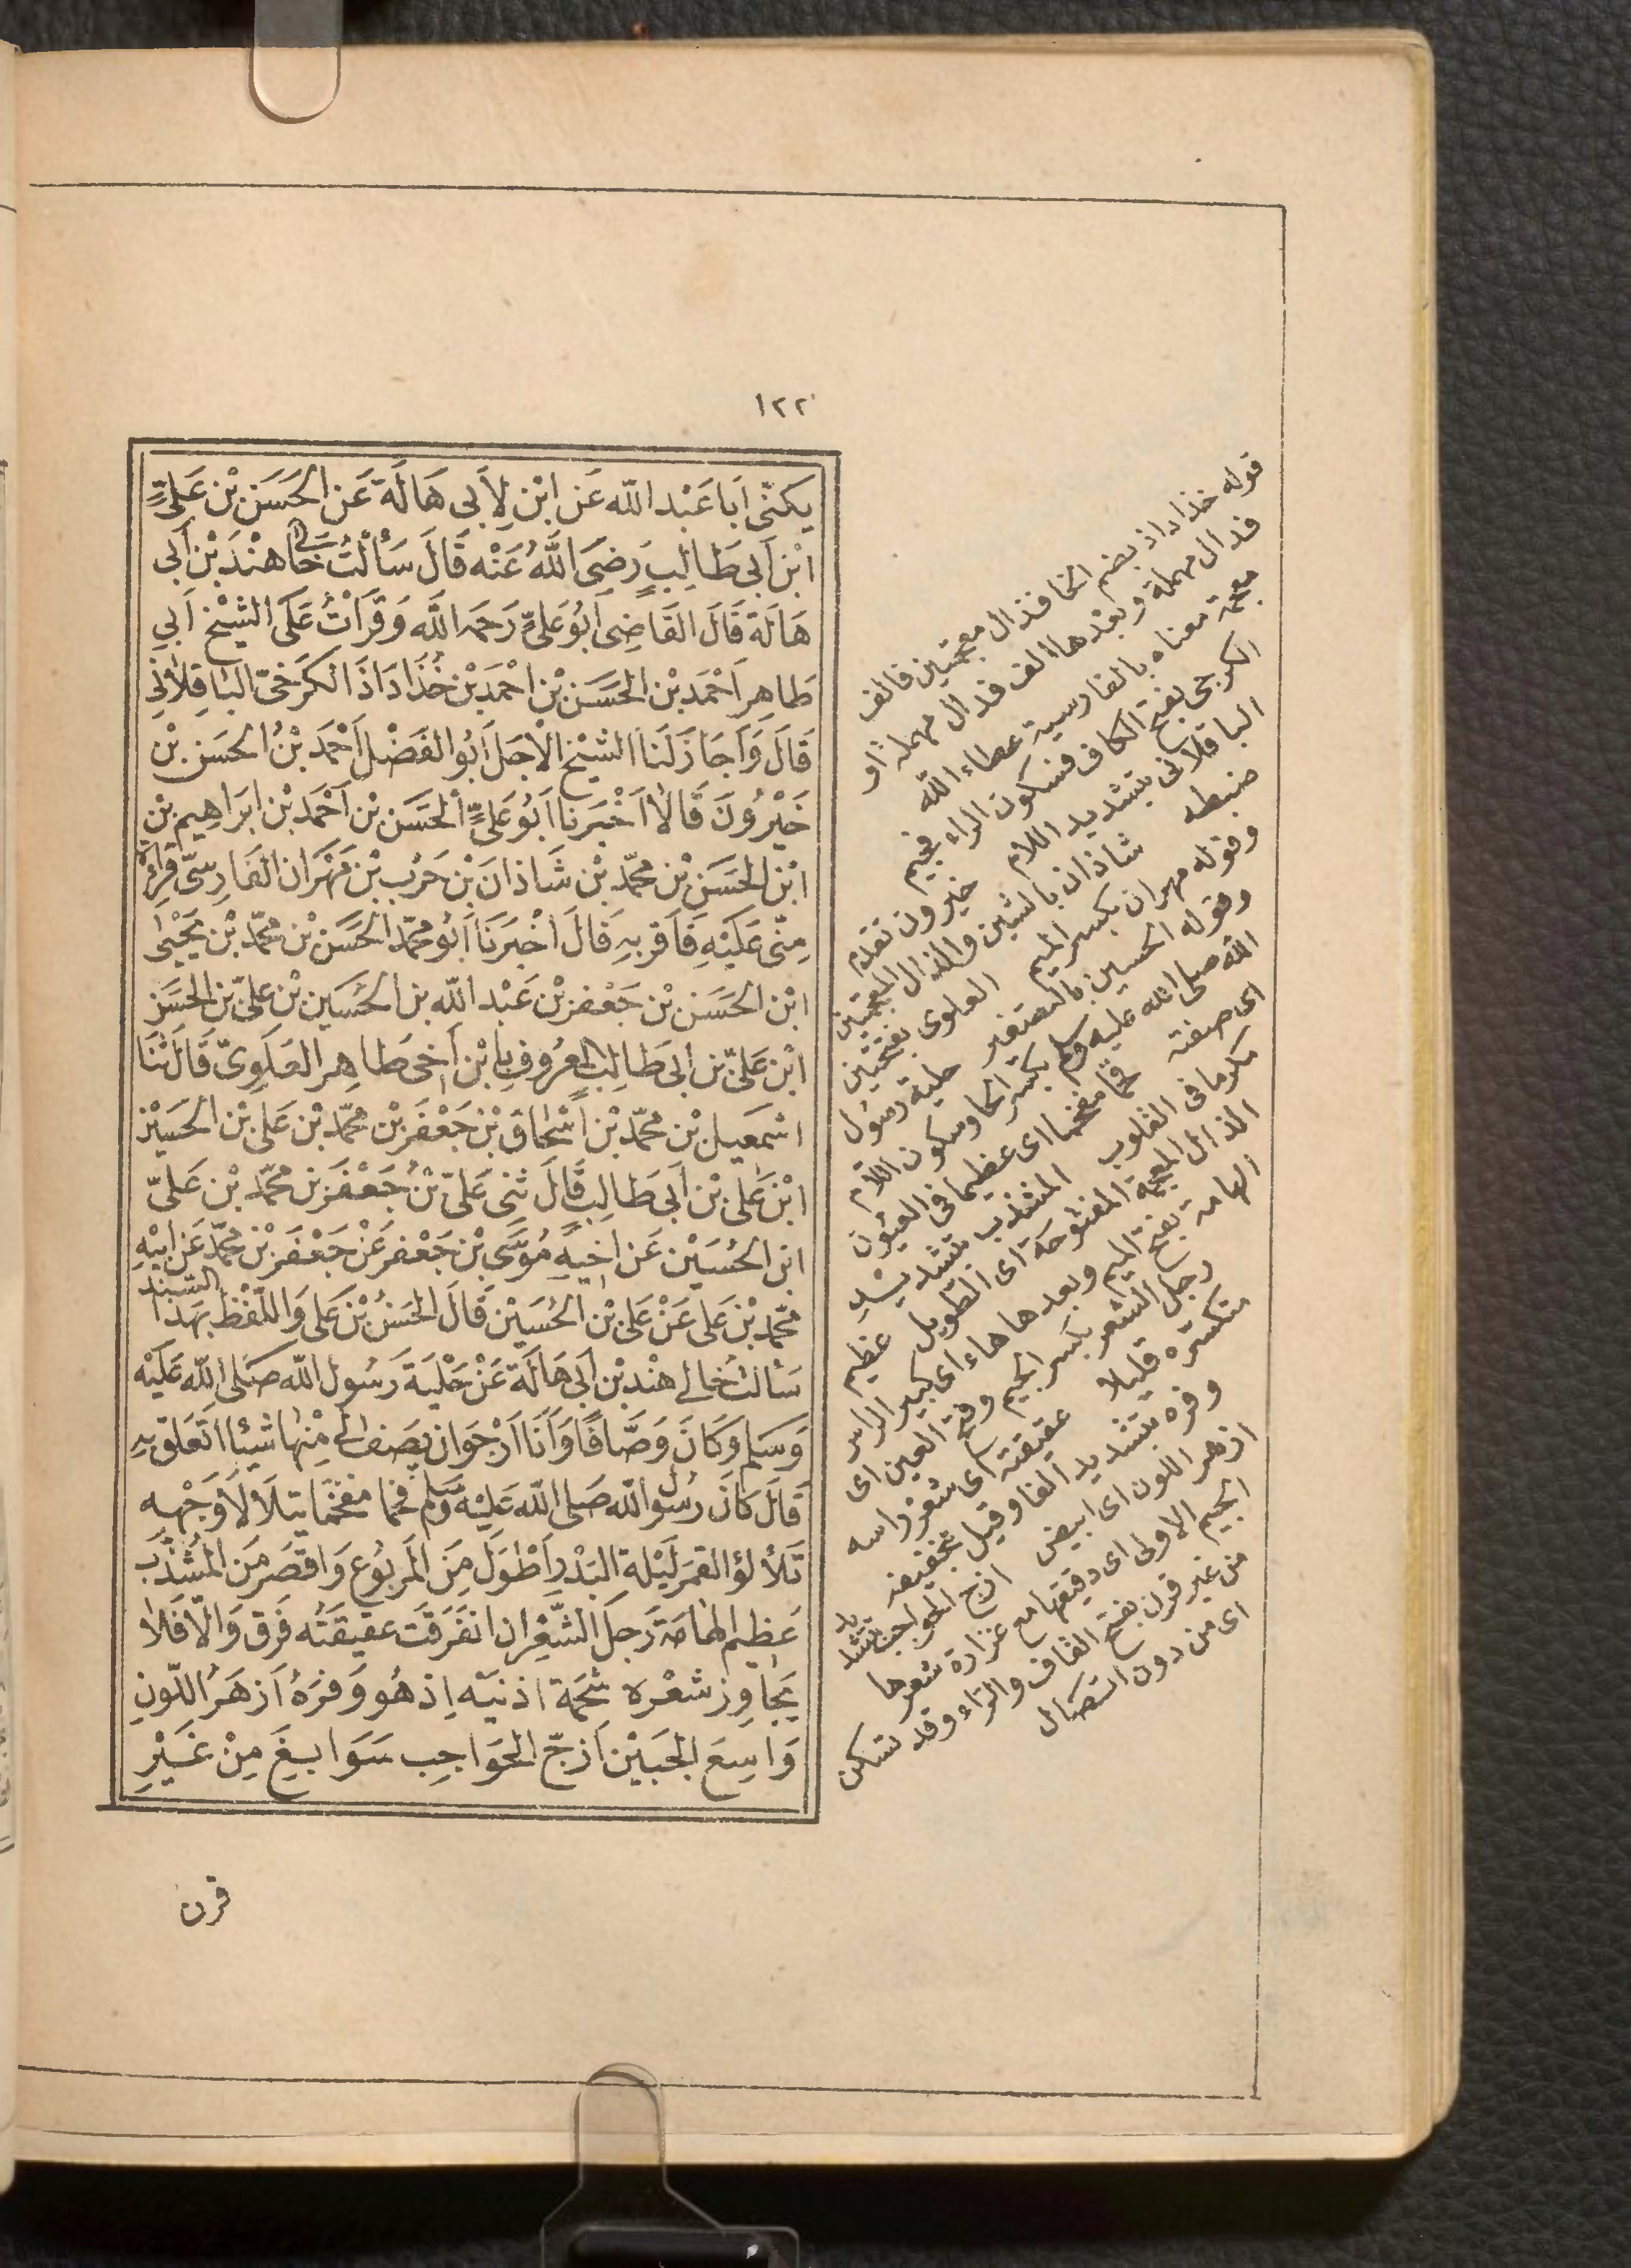 ١٢٢
يكنّى اَبَا عَبْد اللّه عَن ابْنٍ لِاَبى هَالَةَ عَن الحَسَن بْن عَلِىٍّ
ابْن اَبى طَالِبٍ رَضِىَ اللّٰهُ عَنْه قَالَ سَأَلْتُ خَالِى هِنْدَ بْنَ اَبى
هَالَة قَالَ القَاضِى اَبُوعَلىٍّ رَحِمَه اللّٰه وَقَرَأتُ عَلَى الشَّيْخ اَبى
طَاهِر اَحْمَد بْن الحَسَن بْن احْمَد بْن خُذَادَاذَ الكَرَجىّ البَاقِلَّانِى
قَالَ وَاَجَازَلَنَا الشَّيْخ الْاَجَلّ اَبُو الفَضْل اَحْمَد بْنُ الحَسَن بْن
خَيْرُونَ قَالَا اَخْبَرنَا اَبُوعَلىٍّ الحَسَن بْن اَحْمَد بْن ابَرَاهِيم بْن
ابْن الحَسَن بْن محمّد بْن شَاذَانَ بْن حَرْب بْن مَهْرَان الفَارِسِىّ قِرَاءَةً
مِنّى عَلَيْه فَاَقَرّ بِه قَالَ اَخْبَرَنَا اَبُو محمّد الحَسَن بْن محمّد بْن يَحْيىٰ
ابْن الحَسَن بْن جَعْفر بْن عَبْد اللّه بن الحُسَين بْن عَلىّ بن الحسَين
ابْن عَلىّ بن ابى طَالِب المعْرُوف بِابْن اَخى طَاهِر العَلَوِىّ قَالَ ثَنَا
اسْمَعِيل بْن محمّد بْن اسْحَاق بْن جَعْفَر بْن محمّد بْن عَلى بْن الحسَين
ابْن عَلى بْن اَبى طَالِب قَالَ ثنى عَلىّ بْنُ جَعْفَر بْن محمّد بْن عَلىّ
ابن الحُسَيْن عَن اَخيهِ مُوسَى بْن جَعْفر عَنْ جَعْفَر بْن محمّد عَن اَبيْهِ
محمّد بْن عَلى عَنْ عَلى بْن الحُسَيْن قَالَ الحَسَنُ بْن عَلى وَاللّفْظ بِهَذا السّنَد
سَألتُ خَالى هِنْد بْن اَبى هَالَة عَنْ حِلْيَة رَسُول اللّٰه صَلى اللّٰه عَلَيْه
وَسَلم وَكَانَ وَصَّافًا وَاَنَا اَرْجُو اَن يَصِفَ لى مِنْهَا شَيْئا اَتَعَلّق بِه
قَالَ كَانَ رَسُول اللّه صَلى اللّٰه عَلَيْه وَسَلم فخما مفخّما يتلَأْلَأُ وَجْهه
تَلَأْلُؤَ القمَر لَيْلَة البَدْر اَطْوَل مِنَ المَربُوع وَاَقصَر مِنَ المشَذّب
عَظيْم الهَامَة رَجِل الشَّعْر ان انفَرَقَت عَقيقَتُه فَرَق وَالّا فَلَا
يُجَاوِز شَعْرُه شَحْمَة اذنيْه اِذ هُو وَفرَهُ اَزهَرُ اللّونِ
وَاسِعَ الجَبَيْن اَزجّ الحَوَاجِب سَوَابِغَ مِنْ غَيْرِ
قرن
قوله خذاداذ بضم الخا فذال معجمتين فالف
فدال مهملة وبعدها الف فدال مهملة او
معجمة معناه بالفارسية عطاء اللّه
الكرجى بفتح الكاف فسكون الراء فجيم
الباقلانى بتشديد اللام خيرون تقدم
ضبطه شاذان بالشين والذال المعجمتين
وقوله مهران بكسر الميم العلوى بفتحتين
وقوله الحسين بالتصغير حلية رسول
اللّه صلى اللّه عليه وسلم بكسر الحا وسكون اللام
اى صفته فخما مفخما اى عظيما فى العيون
مكرما فى القلوب المشذب بتشديد
الذال المعجمة المفتوحة اى الطويل عظيم
الهامة بفتح الميم وبعدها هاء اى كبير الراس
رجل الشعر بكسر الجيم وفتح العين اى
متكسّره قليلا عقيقته اى شعر راسه
وفره بتشديد الفا وقيل بتخفيفه
ازهر اللون اى ابيض ازج الحواجب بتشديد
الجيم الاولى اى دقيقها مع غزارة شعرها
من غير قرن بفتح القاف والراء وقد تسكن
اى من دون اتصال